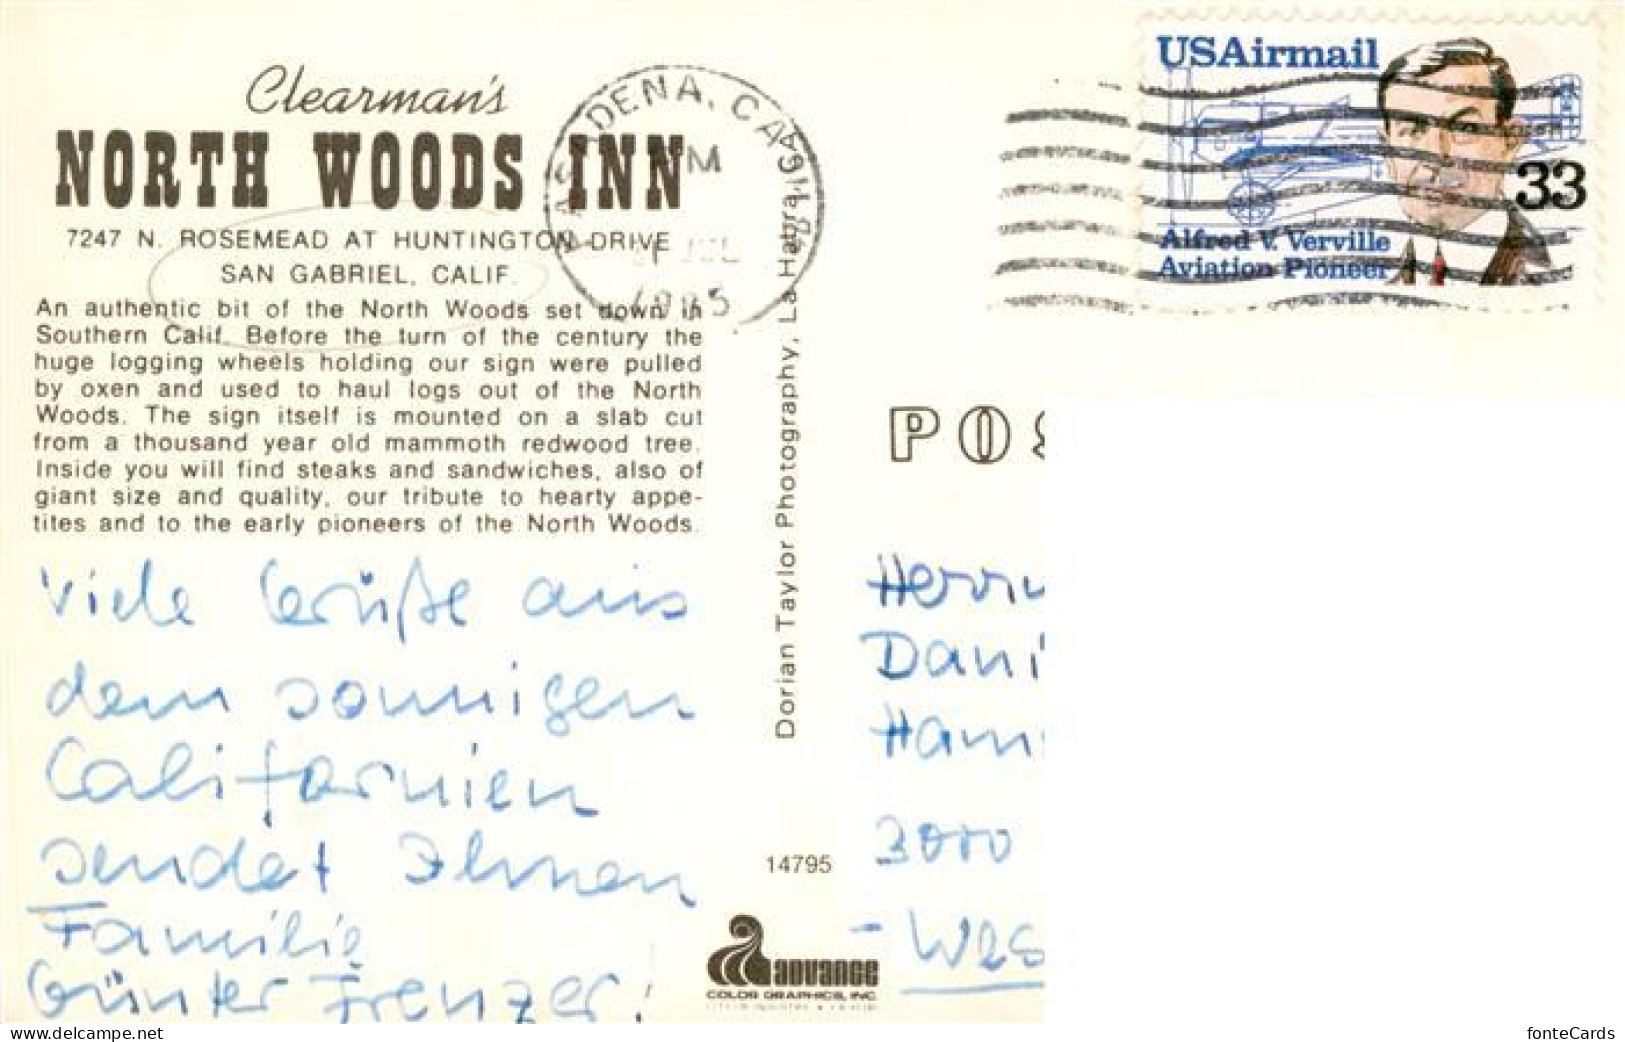 Clearman's
NORTH WOODS INN
7247 N. ROSEMEAD AT HUNTINGTON DRIVE
SAN GABRIEL, CALIF.
An authentic bit of the North Woods set down in
Southern Calif. Before the turn of the century the
huge logging wheels holding our sign were pulled
by oxen and used to haul logs out of the North
Woods. The sign itself is mounted on a slab cut
from a thousand year old mammoth redwood tree.
Inside you will find steaks and sandwiches, also of
giant size and quality, our tribute to hearty appe-
tites and to the early pioneers of the North Woods.
Viele Grüße aus
dem sonnigen
Californien
sendet Ihnen
Familie
Günter Frenzer!
PASADENA, CA
1985
Dorian Taylor Photography, La Habra
14795
advance
COLOR GRAPHICS, INC.
USAirmail
33
Alfred V. Verville
Aviation Pioneer
POS
Herrn
Dani
Ham
3000
- Wes
delcampe.net
fonteCards